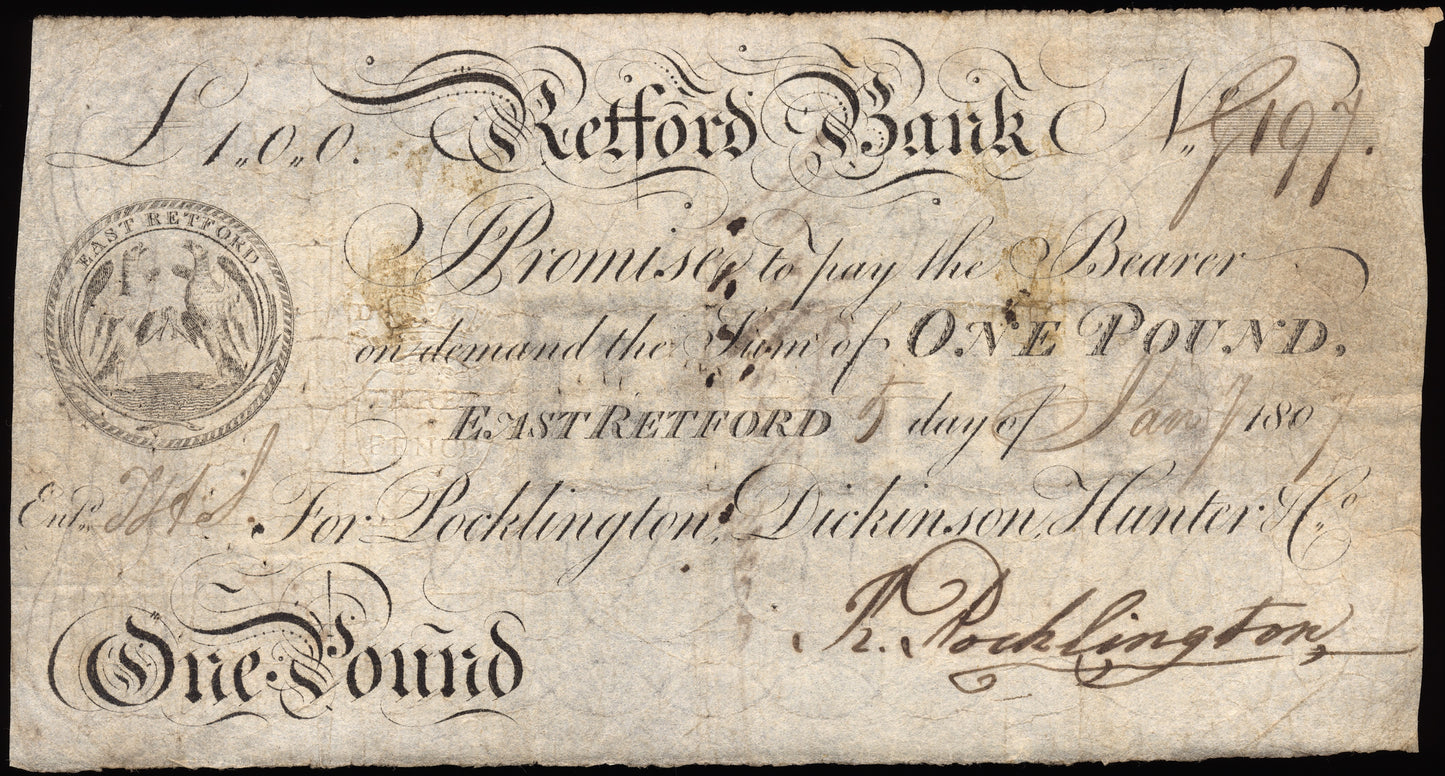 £1,,0,,0. Retford Bank No. g197.
EAST RETFORD
I Promise to pay the Bearer
on demand the Sum of ONE POUND.
EAST RETFORD 5 day of Jany 1807
Entd.
For Pocklington, Dickinson, Hunter & Co.
R. Pocklington
One Pound